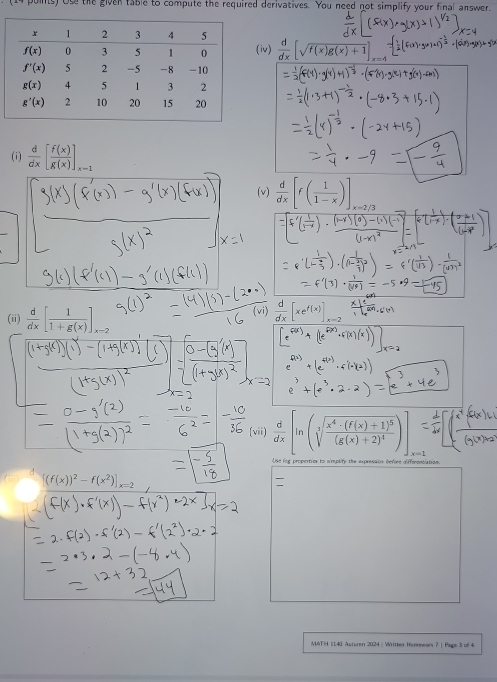 points) Use the given table to compute the required derivatives. You need not simplify your final answer.
x 1 2 3 4 5
f(x) 0 3 5 1 0
f'(x) 5 2 -5 -8 -10
g(x) 4 5 1 3 2
g'(x) 2 10 20 15 20
(i) d/dx [f(x)/g(x)] x=1
[g(x)(f'(x)) - g'(x)(f(x)) / g(x)²] x=1
g(1)(f'(1)) - g'(1)(f(1)) / g(1)² = (4)(5) - (2·0) / 16
(ii) d/dx [1/(1+g(x))] x=2
[(1+g(x))(1)' - (1+g(x))'(1) / (1+g(x))²] x=2 = [0-g'(x) / (1+g(x))²] x=2
= 0-g'(2) / (1+g(2))² = -10/6² = -10/36
= -5/18
[(f(x))² - f(x²)] x=2
2(f(x)·f'(x)) - f'(x²)·2x] x=2
= 2·f(2)·f'(2) - f'(2²)·2·2
= 2·3·2 - (-8·4)
= 12+32
= 44
d/dx [(f(x)·g(x)+1)^1/2] x=4
(iv) d/dx [√f(x)g(x)+1] x=4
= 1/2(f(4)·g(4)+1)^-1/2 · (f'(4)·g(4)+g'(4)·f(4))
= 1/2(1·3+1)^-1/2 · (-8·3+15·1)
= 1/2(4)^-1/2 · (-24+15)
= 1/4 · -9 = -9/4
(v) d/dx [f(1/(1-x))] x=2/3
= [f'(1/(1-x)) · (1-x)(0)-(1)(-1) / (1-x)²]
= f'(3) · = -5·9 = -45
(vi) d/dx [xe^f(x)] x=2
[e^f(x) + (e^f(x)·f'(x)(x))] x=2
e^f(2) + (e^f(2)·f'(2)(2))
e³ + (e³·2·2) = e³ + 4e³
(vii) d/dx [ln(∛(x⁴·(f(x)+1)⁵ / (g(x)+2)⁴))] x=1
Use log properties to simplify the expression before differentiation.
=
MATH 1140 Autumn 2024 | Written Homework 7 | Page 3 of 4